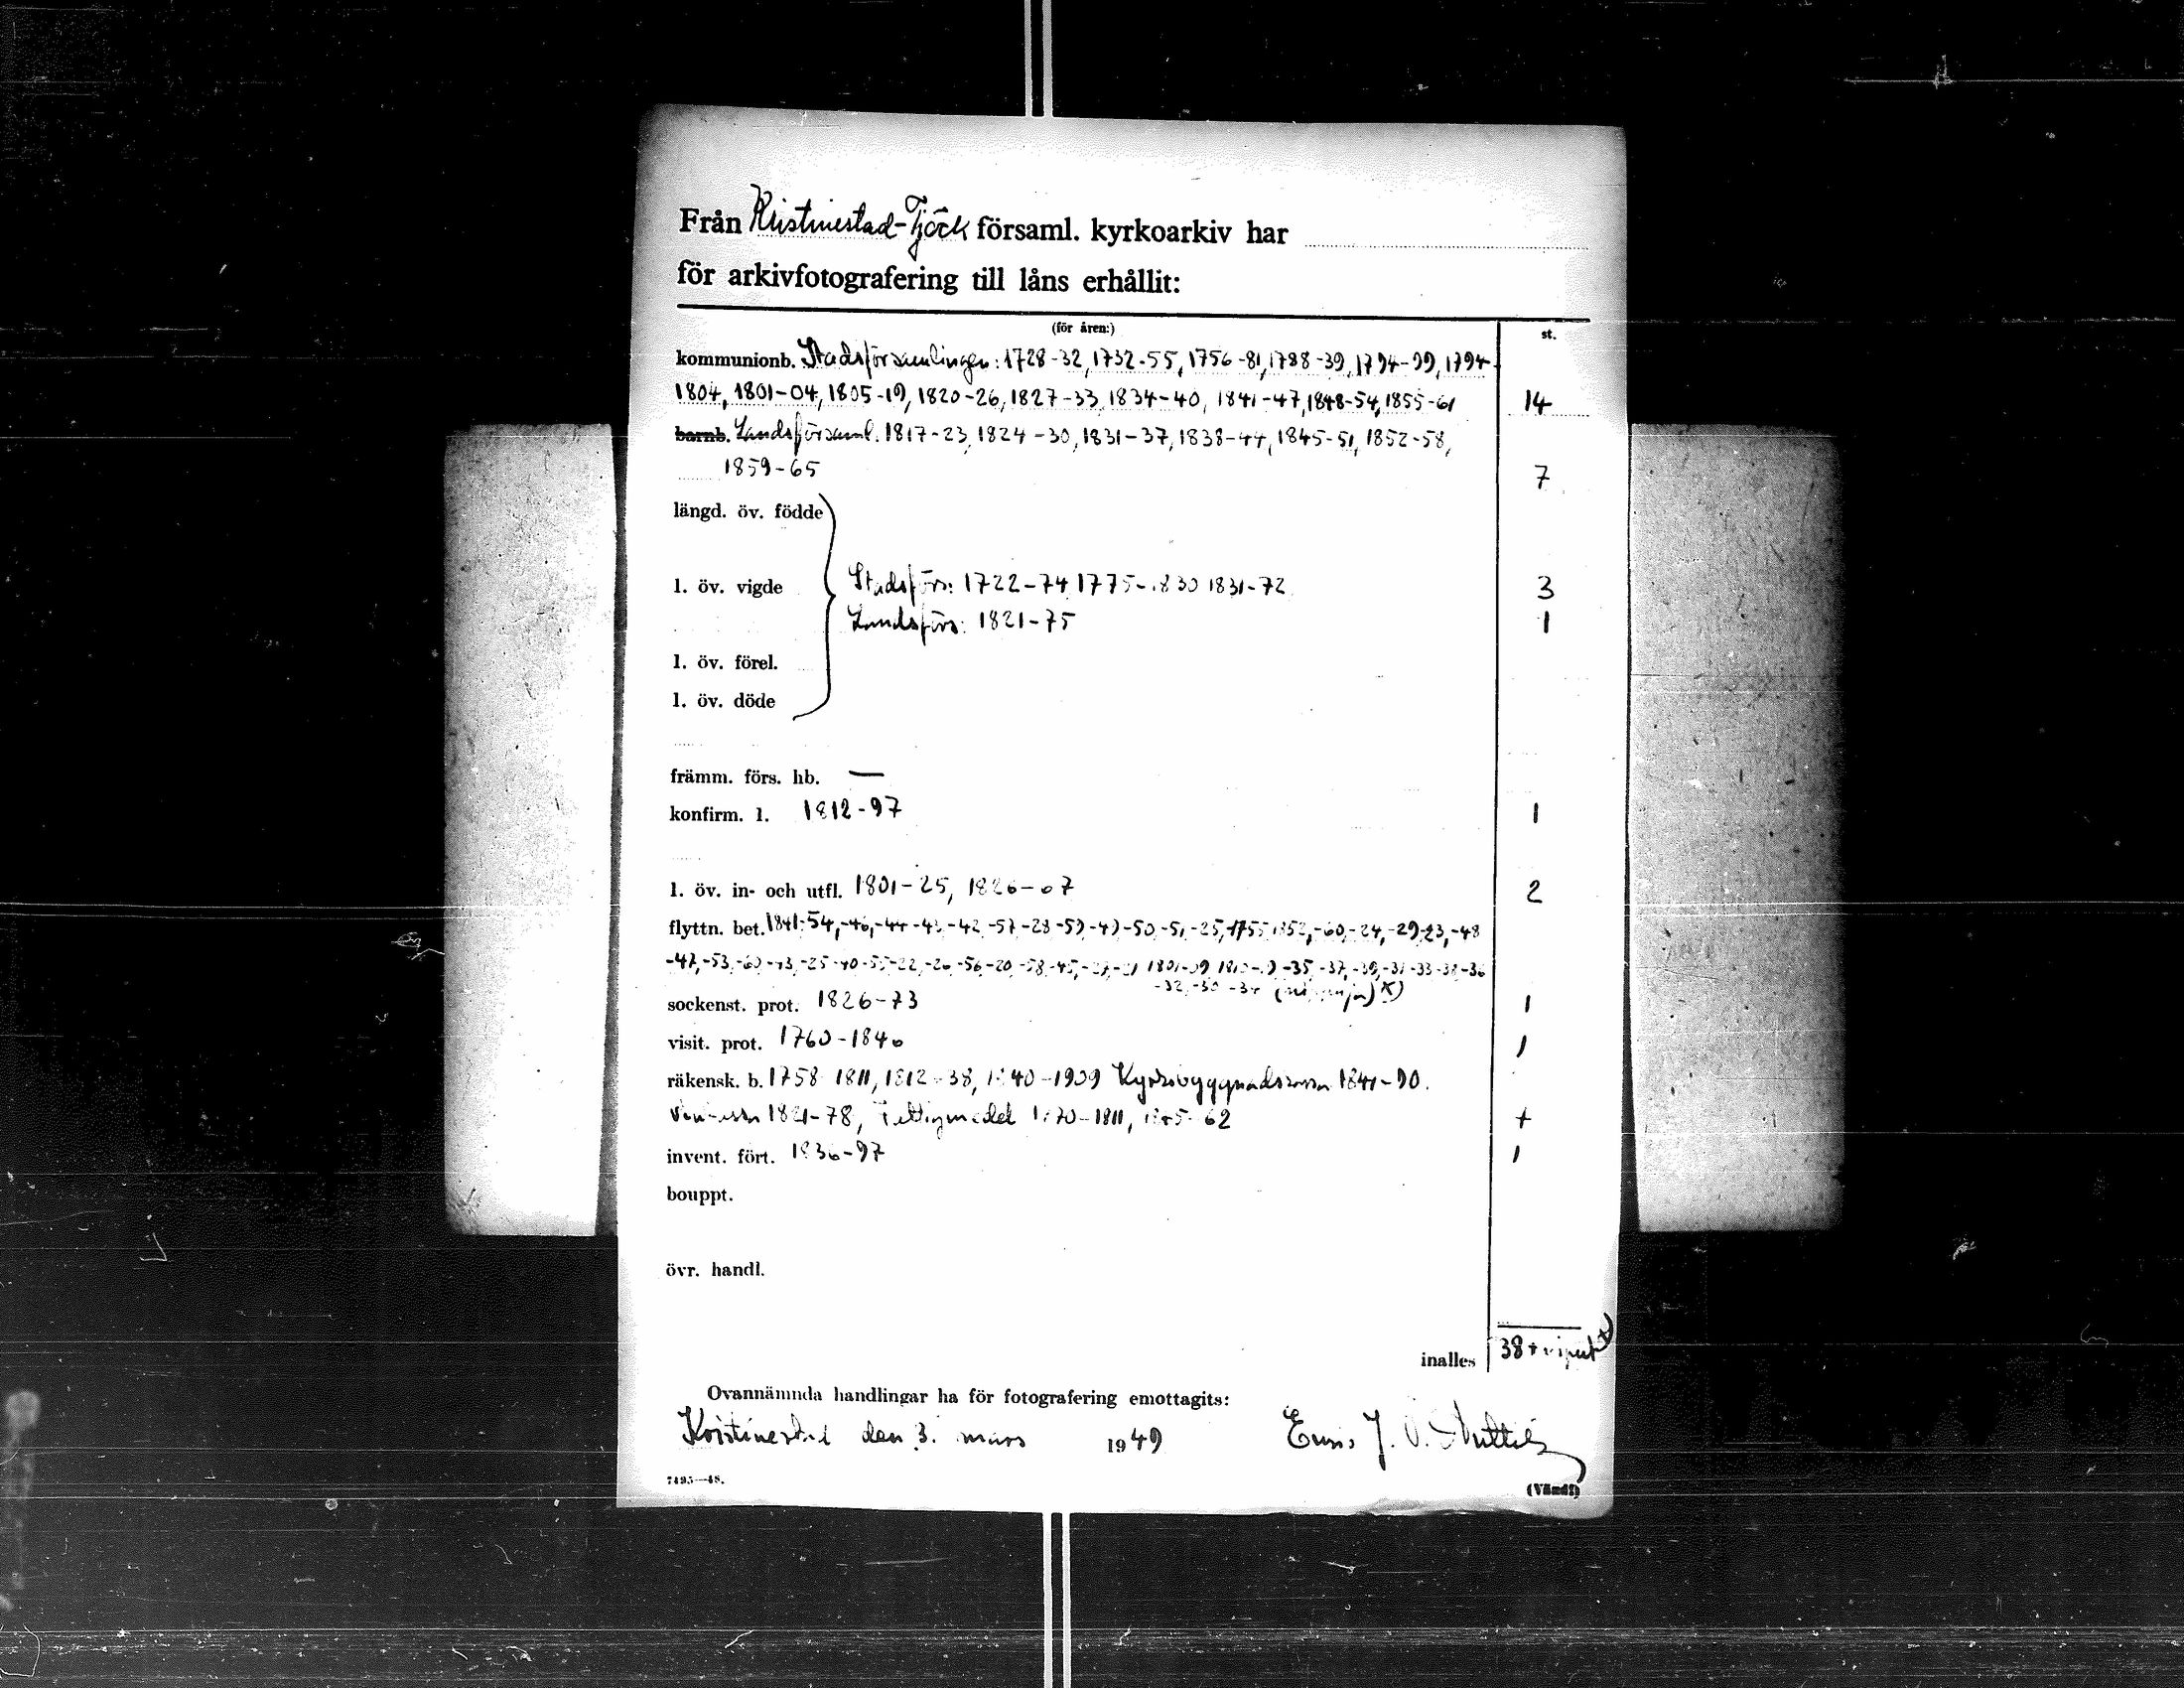 Från Kristinestad-Tjöck församl. kyrkoarkiv har
för arkivfotografering till låns erhållit:
(för åren:) st.
kommunionb. Stadsförsamlingen: 1728-32, 1732-55, 1756-81, 1788-39, 1794-99, 1794-
1804, 1801-04, 1805-19, 1820-26, 1827-33, 1834-40, 1841-47, 1848-54, 1855-61 14
barnb. Landsförsaml. 1817-23, 1824-30, 1831-37, 1838-44, 1845-51, 1852-58,
1859-65 7
längd. öv. födde
l. öv. vigde Stadsförs: 1722-74 1775-1830 1831-72 3
Landsförs: 1821-75 1
l. öv. förel.
l. öv. döde
främm. förs. hb. —
konfirm. l. 1812-97 1
l. öv. in- och utfl. 1801-25, 1826-67 2
flyttn. bet. 1841-54, -46, -44 -43 -42 -57 -28 -59 -49 -50, -51, -25, 1755 1852, -60, -24, -29 -23, -48
-47, -53, -25 -40 -55 -22, -26 -56 -20, -58 -45, 1801-09 -35, -37, -39, -31 -33 -38 -36
-32, -30 -34 x)
sockenst. prot. 1826-73 1
visit. prot. 1760-1840 1
räkensk. b. 1758-1811, 1812-38, 1840-1909 Kyrkobyggnadskassa 1841-90.
1821-78, 1811, 62
invent. fört. 1836-97 1
bouppt.
övr. handl.
inalles 38 +
Ovannämnda handlingar ha för fotografering emottagits:
Kristinestad den 3. mars 1949 J. O.
7495—48. (Vänd!)